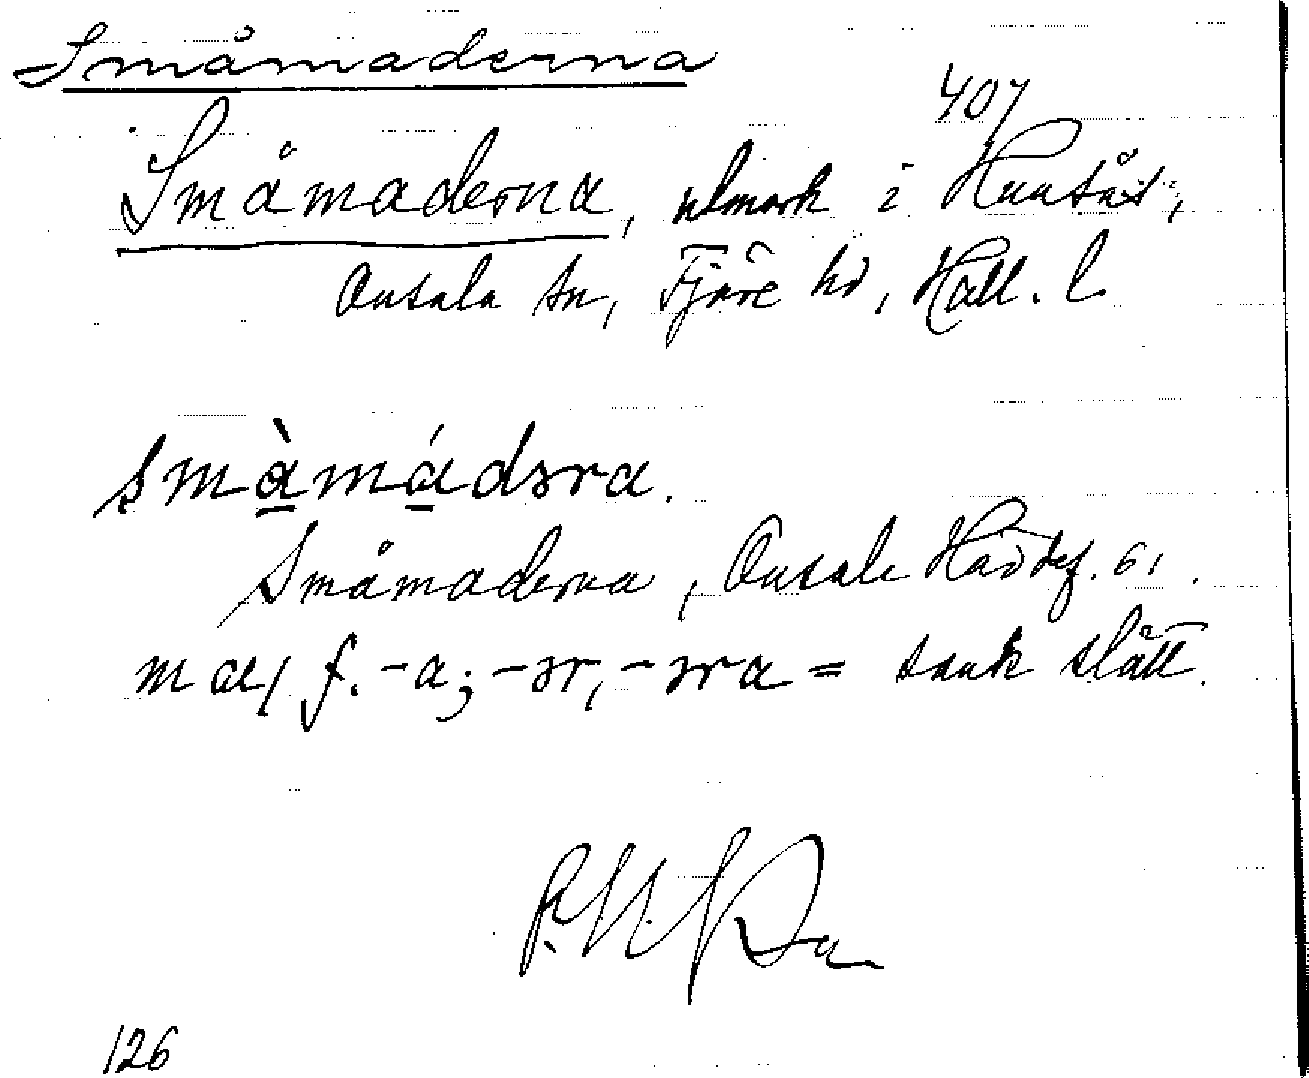 Småmaderna
407
Småmaderna, utmark i Hunsåt,
Onsala sn, Fjäre hd, Hall. l
småmádəra.
Småmaderna, Onsala Hd bef. 61.
mať f. -a; -ər, -əra = sank slått.
126